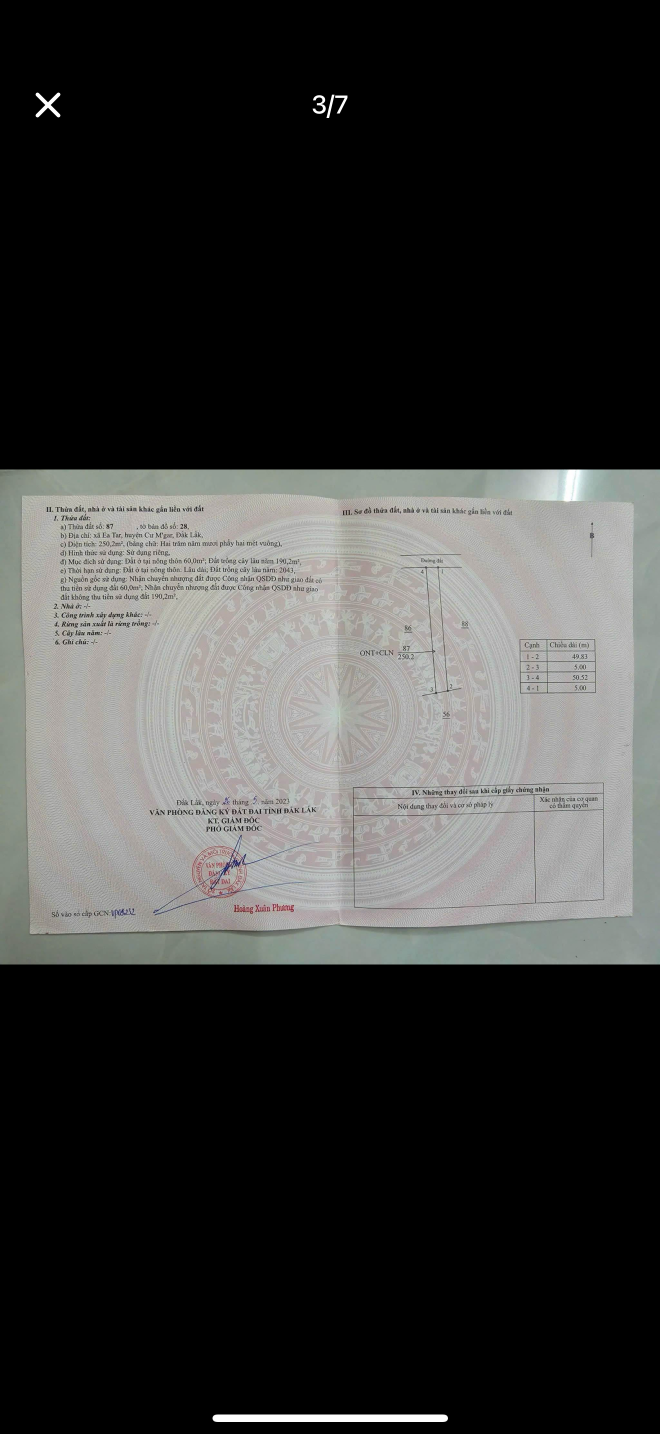 3/7
II. Thửa đất, nhà ở và tài sản khác gắn liền với đất
1. Thửa đất:
a) Thửa đất số: 87 , tờ bản đồ số: 28,
b) Địa chỉ: xã Ea Tar, huyện Cư M'gar, Đắk Lắk,
c) Diện tích: 250,2m², (bằng chữ: Hai trăm năm mươi phẩy hai mét vuông),
d) Hình thức sử dụng: Sử dụng riêng,
đ) Mục đích sử dụng: Đất ở tại nông thôn 60,0m²; Đất trồng cây lâu năm 190,2m²,
e) Thời hạn sử dụng: Đất ở tại nông thôn: Lâu dài; Đất trồng cây lâu năm: 2043,
g) Nguồn gốc sử dụng: Nhận chuyển nhượng đất được Công nhận QSDĐ như giao đất có
thu tiền sử dụng đất 60,0m²; Nhận chuyển nhượng đất được Công nhận QSDĐ như giao
đất không thu tiền sử dụng đất 190,2m²,
2. Nhà ở: -/-
3. Công trình xây dựng khác: -/-
4. Rừng sản xuất là rừng trồng: -/-
5. Cây lâu năm: -/-
6. Ghi chú: -/-
Đắk Lắk, ngày tháng 5 năm 2023
VĂN PHÒNG ĐĂNG KÝ ĐẤT ĐAI TỈNH ĐẮK LẮK
KT. GIÁM ĐỐC
PHÓ GIÁM ĐỐC
VĂN PHÒNG
ĐĂNG KÝ
ĐẤT ĐAI
Hoàng Xuân Phương
Số vào sổ cấp GCN:
III. Sơ đồ thửa đất, nhà ở và tài sản khác gắn liền với đất
B
Đường đất
4 1
86
88
ONT+CLN 87
250.2
3 2
56
Cạnh Chiều dài (m)
1 - 2 49.83
2 - 3 5.00
3 - 4 50.52
4 - 1 5.00
IV. Những thay đổi sau khi cấp giấy chứng nhận
Nội dung thay đổi và cơ sở pháp lý
Xác nhận của cơ quan
có thẩm quyền